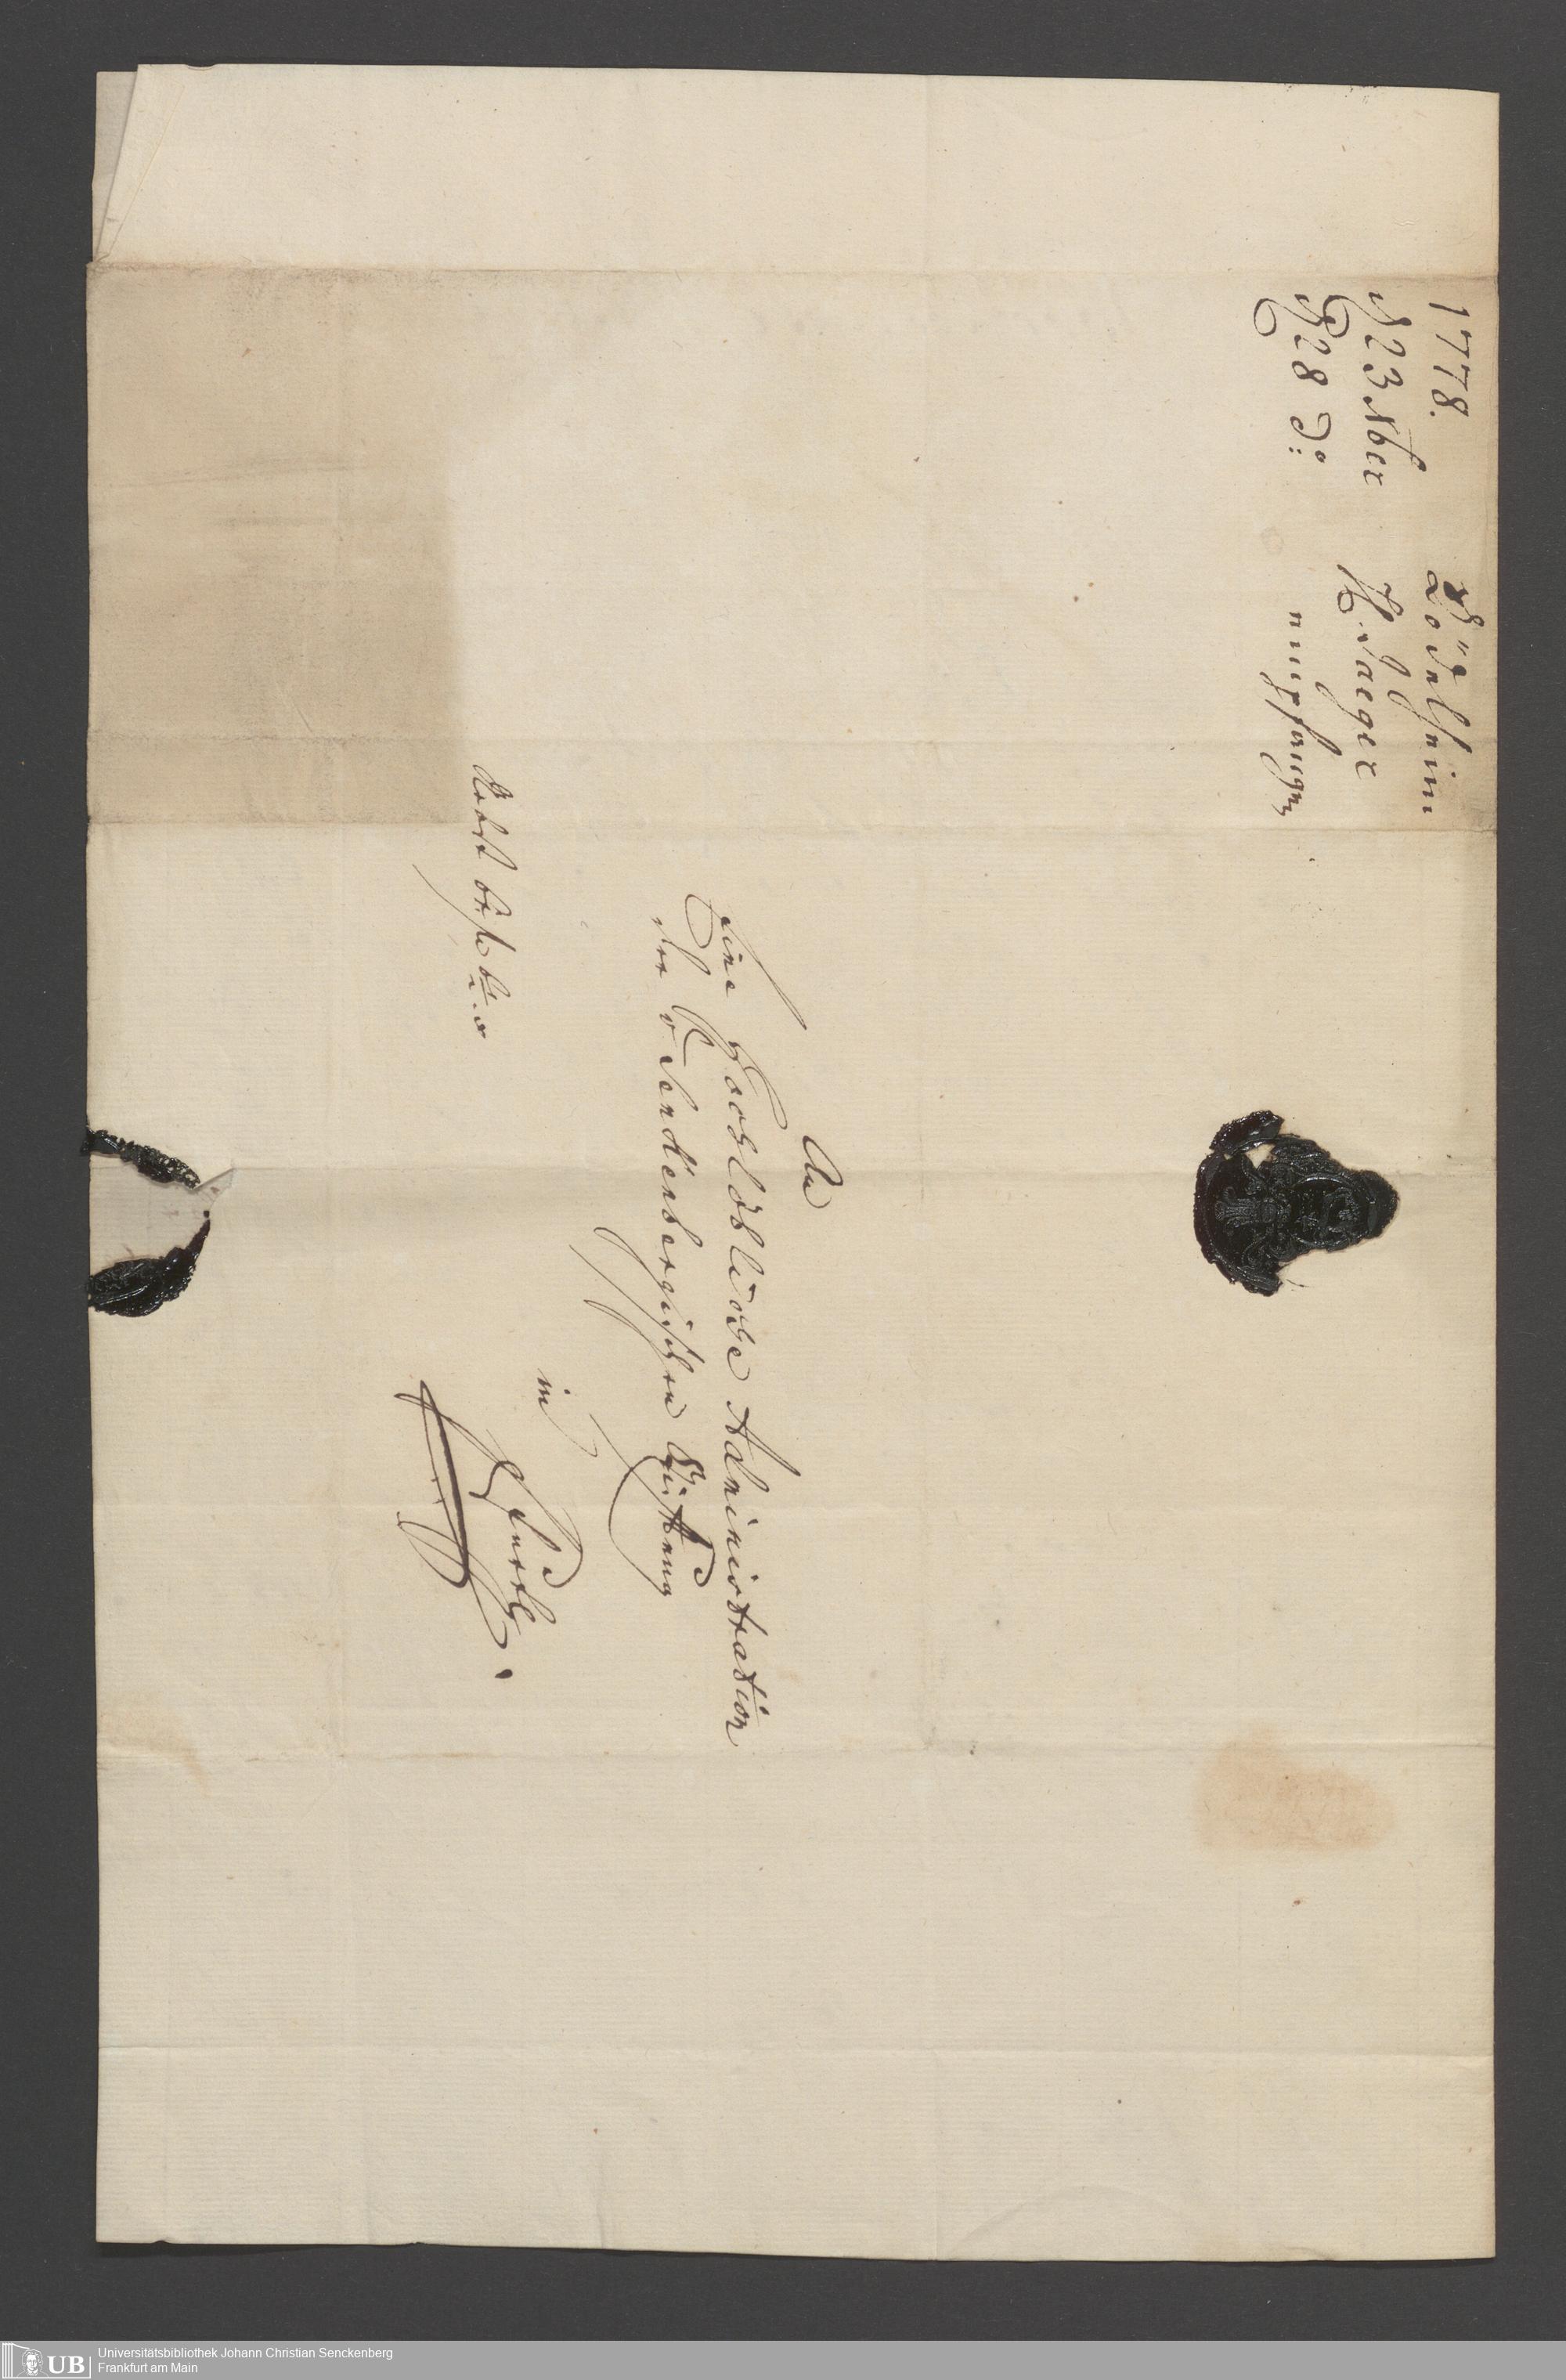 1778. Rödelheim
d 23 Nber H. Jaeger
d 28 do: empfangen
An
Eine Hochlöbliche Administration
der Senckenbergischen Stiftung
in
nebst
Universitätsbibliothek Johann Christian Senckenberg
Frankfurt am Main
UB